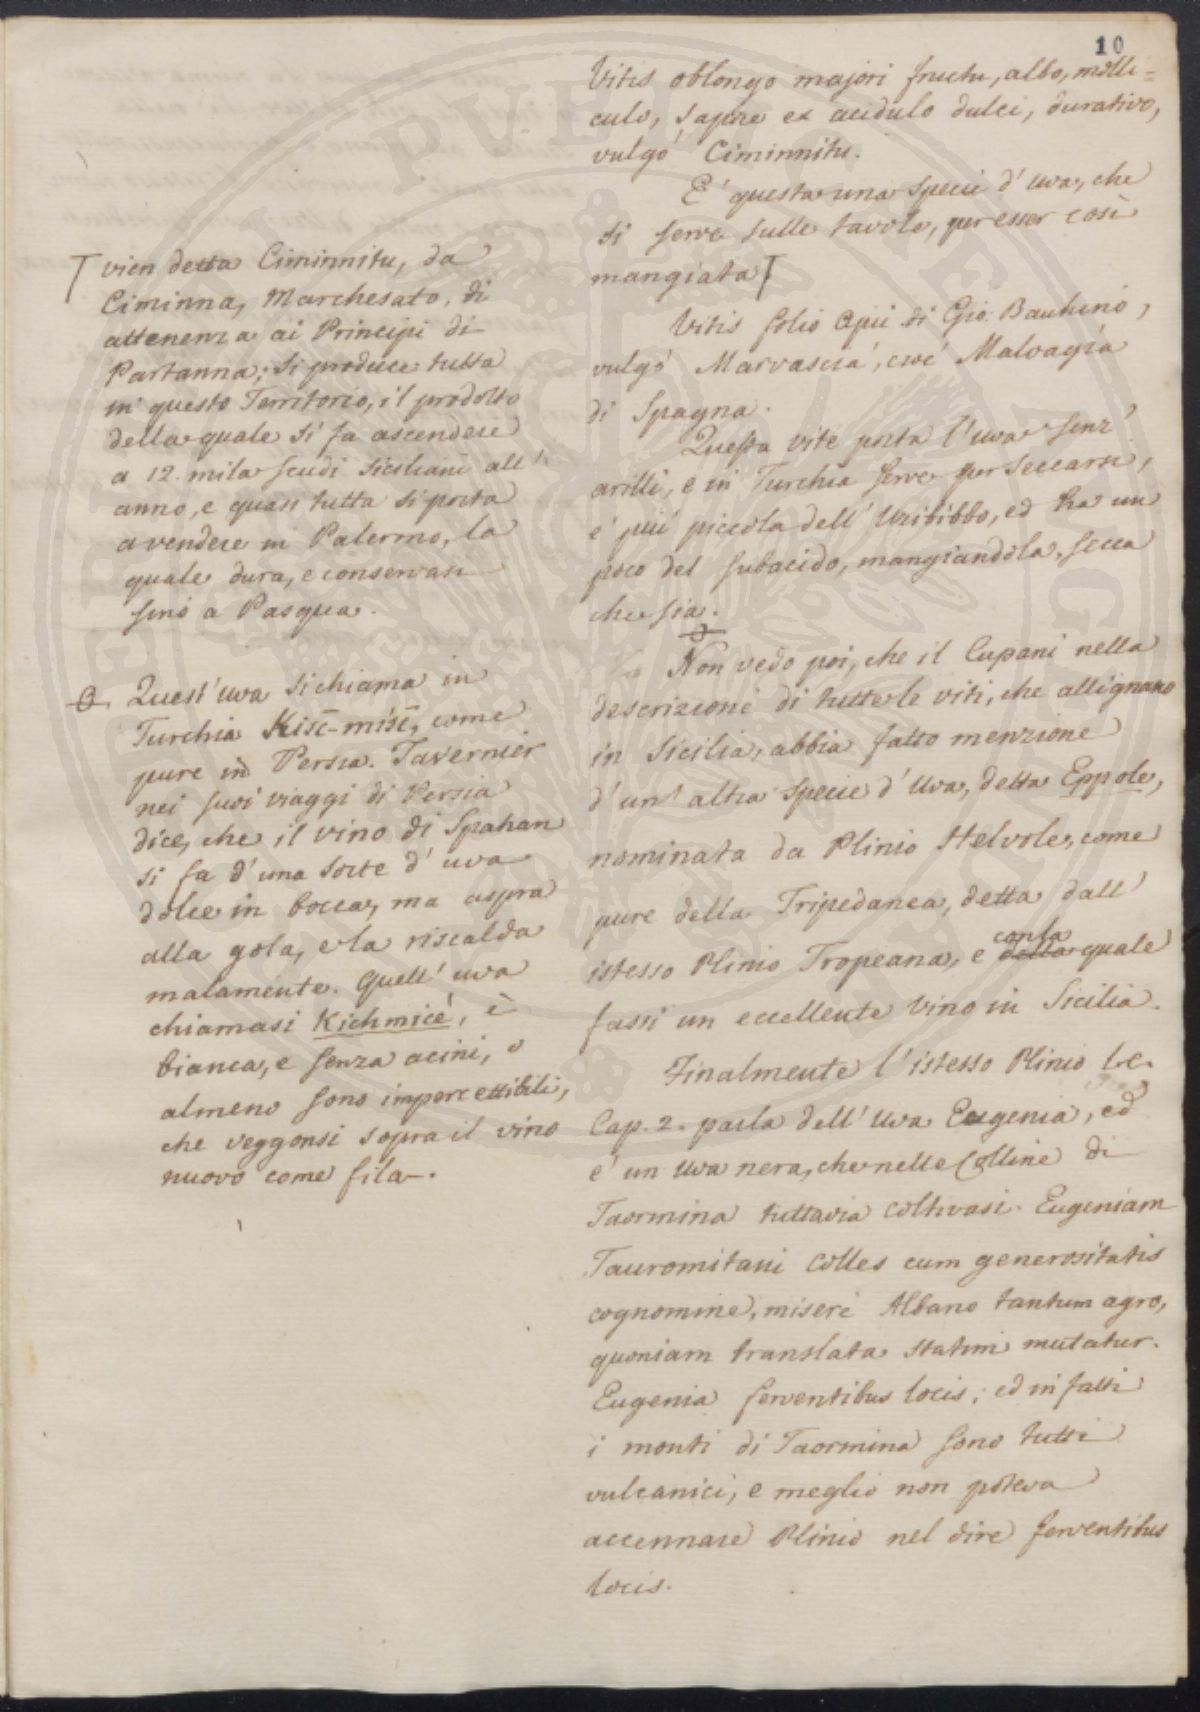 10
Vitis oblongo majori fructu, albo, molli=
culo, sapore ex acidulo dulci, durativo,
vulgò Ciminnitu.
E' questa una specie d'uva, che
si serve sulle tavole, per esser così
mangiata
Vitis folio apii di Gio: Bauhino,
vulgò Marvascià, cioè Malvagìa
di Spagna.
Questa vite porta l'uva senz'
arilli, e in Turchia serve per seccarsi,
è più piccola dell' Uribibbo, ed ha un
poco del subacido, mangiandola secca
che sia.
Non vedo poi, che il Cupani nella
descrizione di tutte le viti, che allignano
in Sicilia, abbia fatto menzione
d'un' altra specie d'Uva, detta Eppole,
nominata da Plinio Helvole, come
pure della Tripedanea, detta dall'
istesso Plinio Tropeana, e della quale
con la
fassi un eccellente vino in Sicilia.
Finalmente l'istesso Plinio
Cap. 2. parla dell' Uva Eugenia, ed
è un uva nera, che nelle Colline di
Taormina tuttavia coltivasi. Eugeniam
Tauromitani colles cum generositatis
cognomine, miserè Albano tantum agro,
quoniam translata statim mutatur.
Eugenia ferventibus locis; ed in fatti
i monti di Taormina sono tutti
vulcanici, e meglio non poteva
accennare Plinio nel dire ferventibus
locis.
vien detta Ciminnitu, da
Ciminna, Marchesato, di
attenenza ai Principi di
Partanna; si produce tutta
in questo Territorio, il prodotto
della quale si fa ascendere
a 12. mila scudi siciliani all'
anno, e quasi tutta si porta
a vendere in Palermo, la
quale dura, e conservasi
sino a Pasqua.
Quest'uva si chiama in
Turchia Kisc-misc, come
pure in Persia. Tavernier
nei suoi viaggi di Persia
dice, che il vino di Spahan
si fa d'una sorte d'uva
dolce in bocca, ma aspra
alla gola, e la riscalda
malamente. Quell'uva
chiamasi Kichmicè, è
bianca, e senza acini, o
almeno sono impercettibili,
che veggonsi sopra il vino
nuovo come fila.